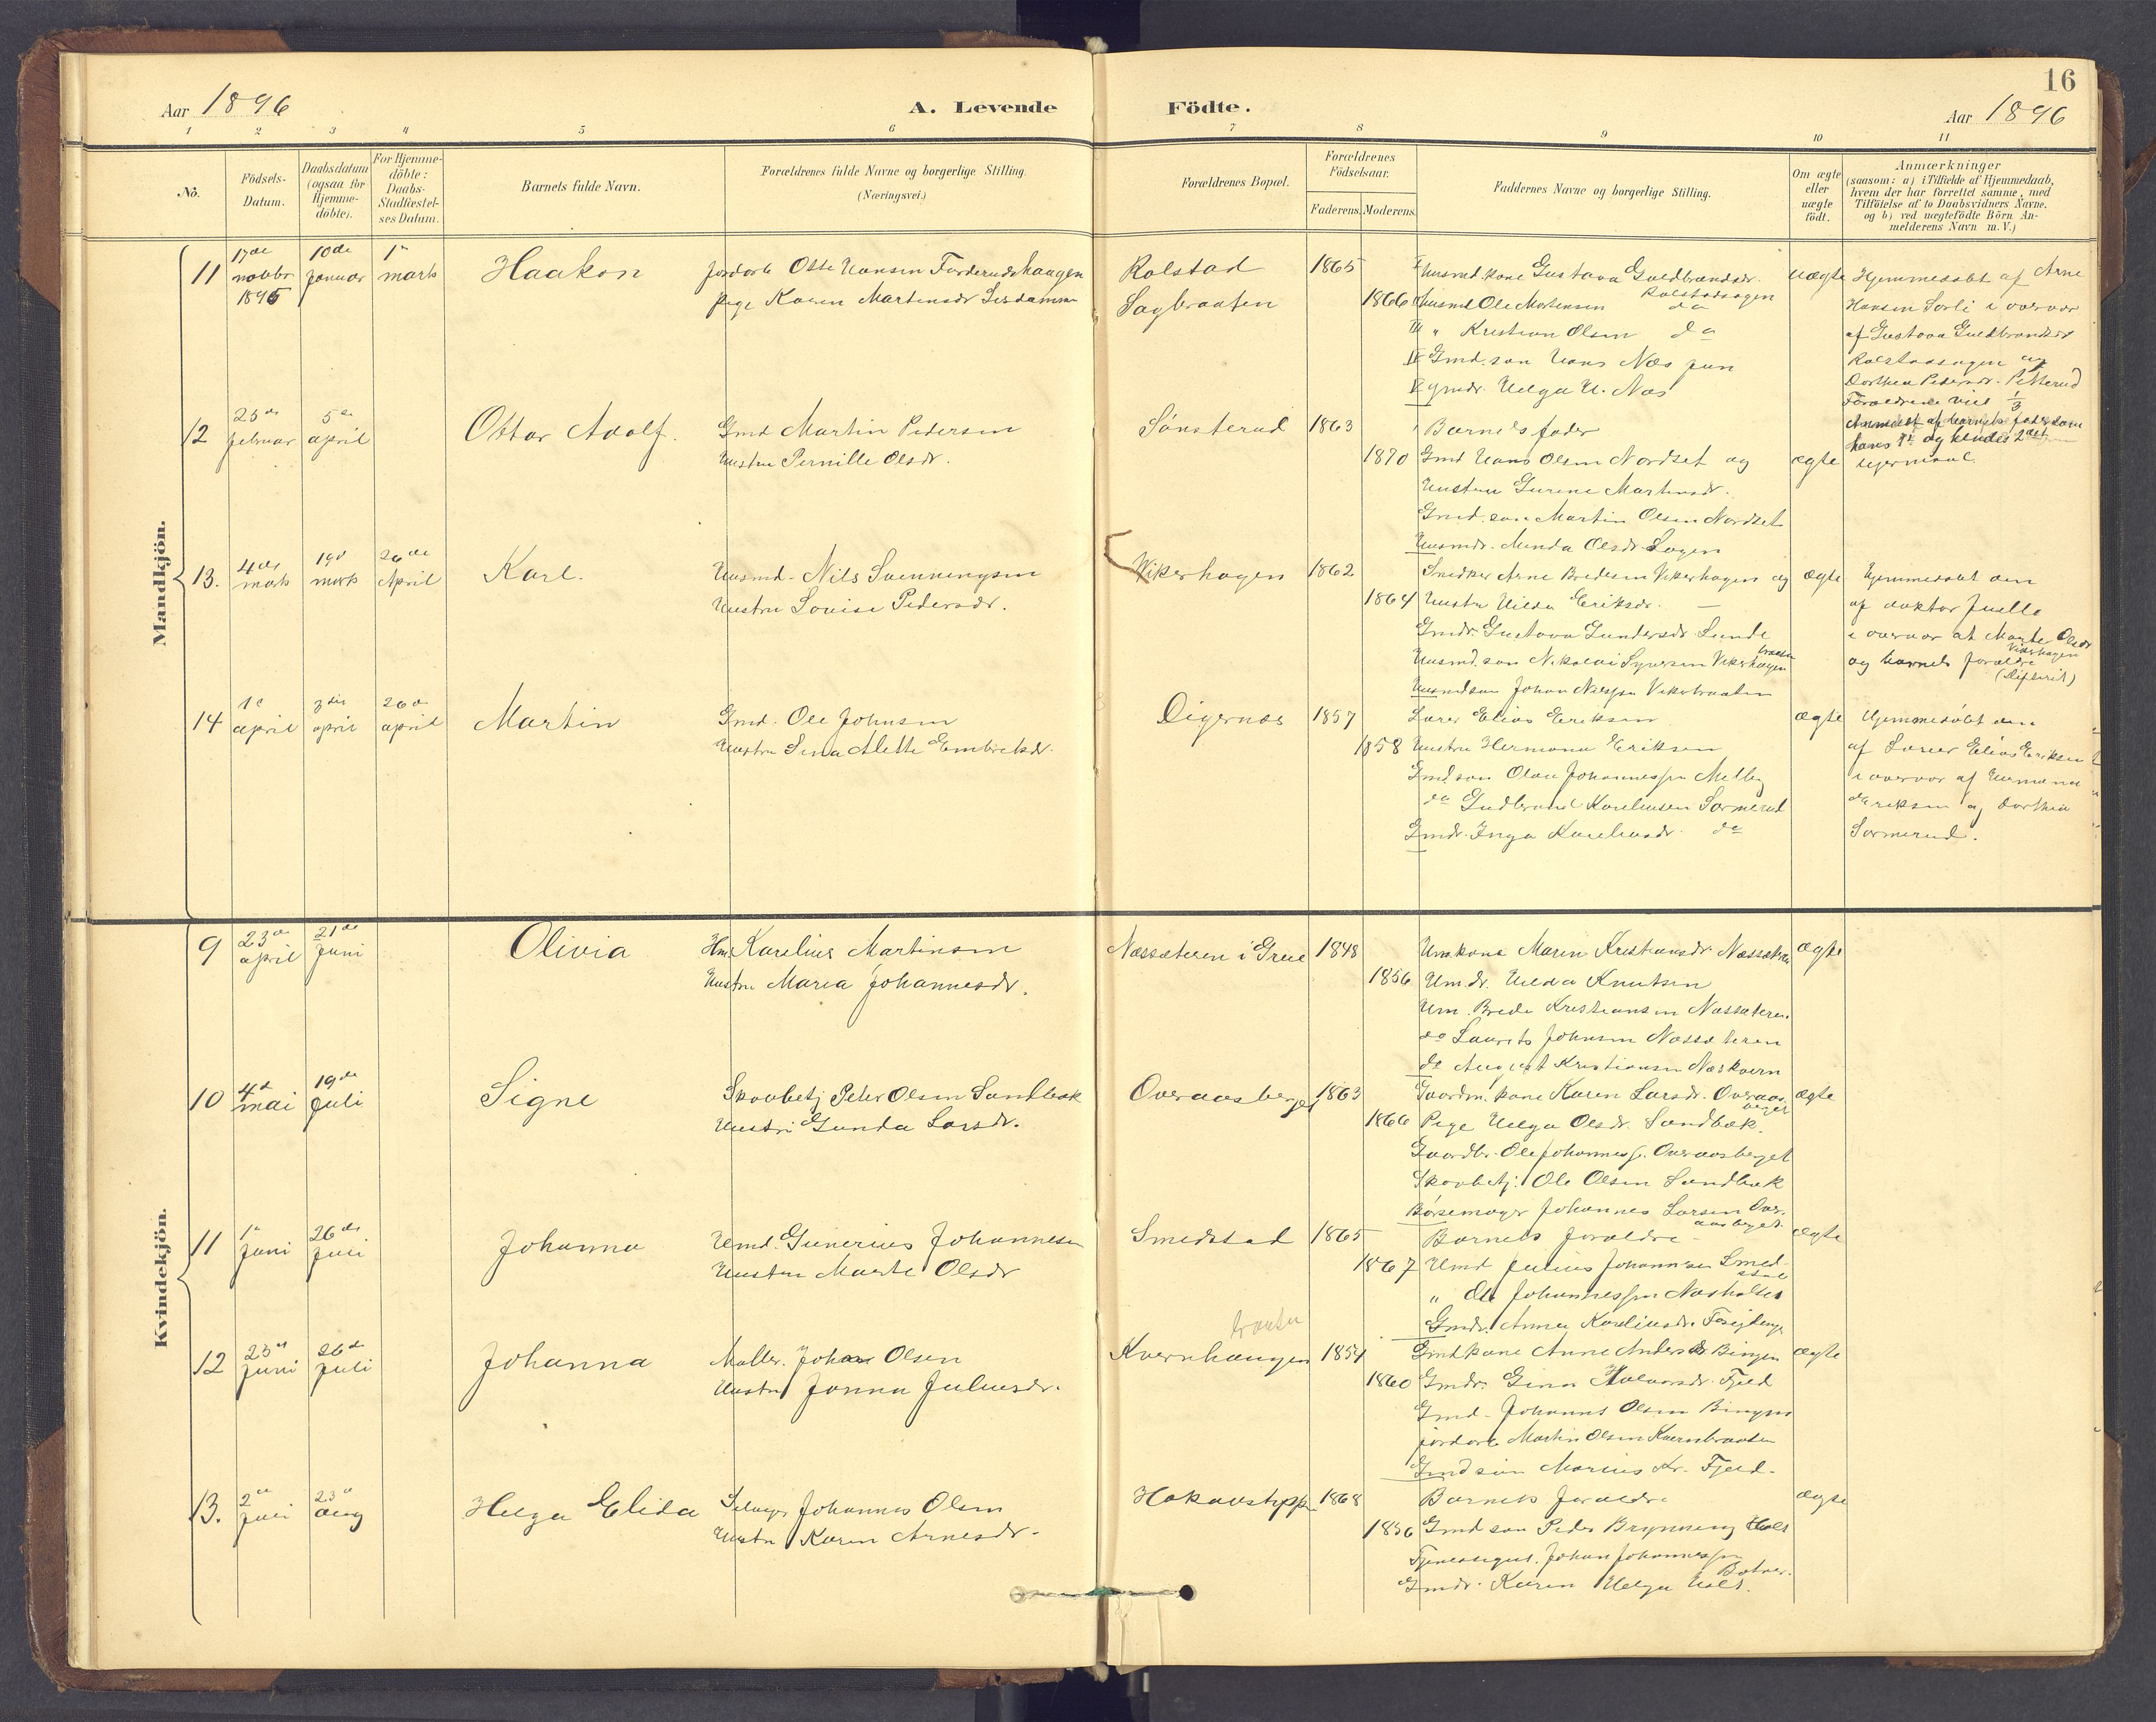 16
Aar 1896
A. Levende Födte.
Aar 1896
1 2 3 4 5 6 7 8 9 10 11
No.
Födsels-Datum.
Daabsdatum (ogsaa for Hjemme-döbte).
For Hjemme-döbte: Daabs-Stadfæstel-ses Datum.
Barnets fulde Navn.
Forældrenes fulde Navne og borgerlige Stilling. (Næringsvei.)
Forældrenes Bopæl.
Forældrenes Födselsaar.
Faderens. Moderens.
Faddernes Navne og borgerlige Stilling.
Om ægte eller uægte födt.
Anmærkninger
(saasom: a) i Tilfælde af Hjemmedaab,
hvem der har forrettet samme, med
Tilföielse af to Daabsvidners Navne,
og b) ved uægtefödte Börn An-
melderens Navn m. V.)
Mandkjön.
11
17de novbr 1895
10de januar
1ste marts
Haakon
jordarb Otto Hansen Forderudshaugen
pige Karen Martinsdr
Rolstad
Sagbraaten
1865
1866
I husmd.kone Gustava Guldbrandsdr. Rolstadsagen
II husmd Ole Mortensen do
III " Kristian Olsen do
IV Gmd.søn Hans Næs
V gmdr. Helga H. Næs
uægte
Hjemmedøbt af Arne
Hansen Sorli i overvær
af Gustava Guldbrandsdr
Rolstadsagen og
Dorthea Pedersdr. Petterud
Forældrene viet 1/3
Anmeldt af barnets fader som
hans 1ste og hendes 2det
leiermaal.
12
februar
5te april
Ottar Adolf.
Gmd Martin Pedersen
Hustru Pernille Olsdr.
Sønsterud
1863
1870
Barnets fader
Gmd Hans Olsen Nordset og
Hustru Gurine Martinsdr.
Gmd.søn Martin Olsen Nordset
Husmdr. Minda Olsdr. Sagen
ægte
13.
4de marts
19d marts
26de April
Karl.
Husmd. Nils Svenningsen
Hustru Louise Pedersdr.
Vikerhagen
1862
1864
Snedker Arne Bredesen Vikerhagen og
Hustru Hilda Eriksdr. —
Gmdr. Gustava Gundersdr. Lunde
Husmd.søn Nikolai Syversen Vikerbraaten
Husmdsøn Johan Nilsson Vikerbraaten
ægte
Hjemmedøbt den
af doktor Juell
i overvær af Marte Olsdr Vikerhagen
og barnets forældre
(difterit)
14
1e april
3die april
26de april
Martin
Gmd. Ole Johnsen
Hustru Lina Alette Embretsdr.
Digernæs
1857
1858
Lærer Elias Eriksen
Hustru Hermana Eriksen
Gmdsøn Olav Johannessen Melby
do Gudbrand Karelinsen Sormerud
Gmdr. Inga Karelinsdr. do
ægte
Hjemmedøbt den
af Lærer Elias Eriksen
i overvær af Hermana
Eriksen og Dorthea
Sormerud.
Kvindekjön.
9
23de april
21de Juni
Olivia
Hm. Karelius Martinsen
Hustru Maria Johannesdr.
Næssæteren i Grue
1848
1856
Hmkone Maren Kristiansdr. Næssæteren
Hm.dr. Hilda Knutsen
Hm. Brede Kristiansen Næssæteren
do Laurits Johnsen Næssæteren
do August Kristiansen Næskvern
ægte
10
4d mai
19de juli
Signe
Skovbetj Peter Olsen Sandbæk
Hustru Gunda Larsdr.
Overaasberget
1863
1866
Gaardm.kone Karen Larsdr. Overaasberget
Pige Helga Olsdr. Sandbæk.
Gaardbr. Ole Johanness. Overaasberget
Skovbetj. Ole Olsen Sandbæk
Bøsemager Johannes Larsen Overaasberget.
ægte
11
1e juni
26de juli
Johanna
Hmd. Gunerius Johannesen
Hustru Marte Olsdr
Smedstad
1865
1867
Barnets forældre
Hmd Julius Johannesen Smedstad
" Ole Johannessen Næsholtet
Gmdr. Anna Karelinsdr.
ægte
12
23de juni
26de juli
Johanna
Møller. Johan Olsen
Hustru Jonna Juliusdr.
Kvernhaugen
braaten
1854
1860
Gmdkone Anne Andersdr. Bingen
Gmdr. Gina Halvorsdr. Fjeld
Gmd. Johannes Olsen Bingen
jordarb Martin Olsen Kvernbraaten
Gmdsøn Marius Kr. Fjeld.
ægte
13.
2de juli
23de aug
Helga Elida
Johannes Olsen
Hustru Karen Arnesdr.
1868
1856
Barnets forældre
Gmd søn Peder Brynning Hols
Tjenestegut. Johan Johannessen Botner.
Gmdr. Karen Helga Hols.
ægte